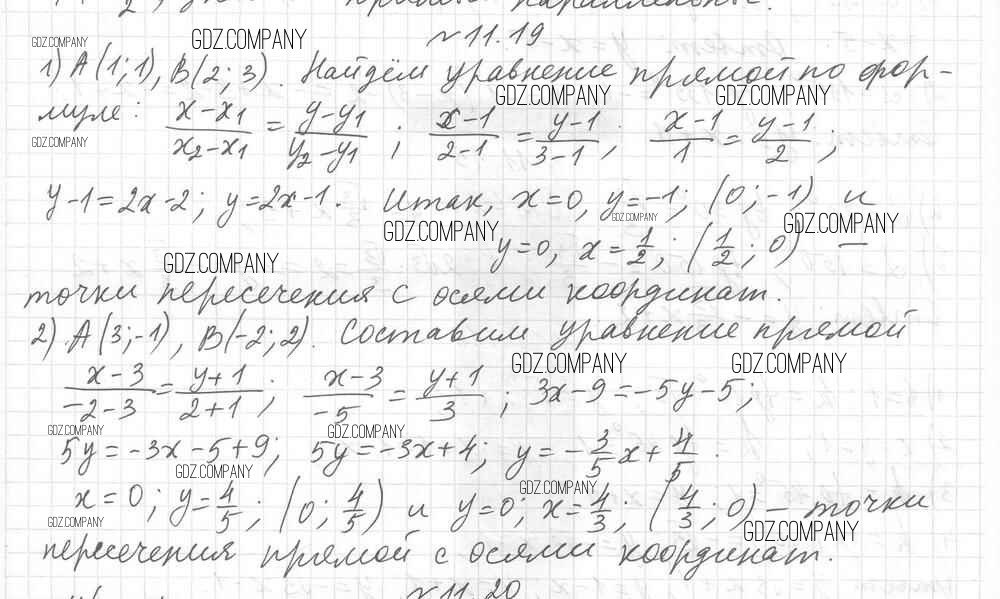 параллельны.
№11.19
GDZ.COMPANY GDZ.COMPANY
1) A(1;1), B(2;3). Найдём уравнение прямой по фор-
GDZ.COMPANY GDZ.COMPANY
муле: (x-x₁)/(x₂-x₁) = (y-y₁)/(y₂-y₁); (x-1)/(2-1) = (y-1)/(3-1); (x-1)/1 = (y-1)/2;
GDZ.COMPANY
y-1=2x-2; y=2x-1. Итак, x=0, y=-1; (0;-1) и
GDZ.COMPANY GDZ.COMPANY GDZ.COMPANY
y=0, x=1/2; (1/2; 0) —
GDZ.COMPANY
точки пересечения с осями координат.
2) A(3;-1), B(-2;2). Составим уравнение прямой
GDZ.COMPANY GDZ.COMPANY
(x-3)/(-2-3) = (y+1)/(2+1); (x-3)/(-5) = (y+1)/3; 3x-9=-5y-5;
GDZ.COMPANY GDZ.COMPANY
5y=-3x-5+9; 5y=-3x+4; y=-3/5x+4/5.
GDZ.COMPANY GDZ.COMPANY
x=0; y=4/5; (0; 4/5) и y=0; x=4/3; (4/3; 0) — точки
GDZ.COMPANY GDZ.COMPANY
пересечения прямой с осями координат.
№11.20